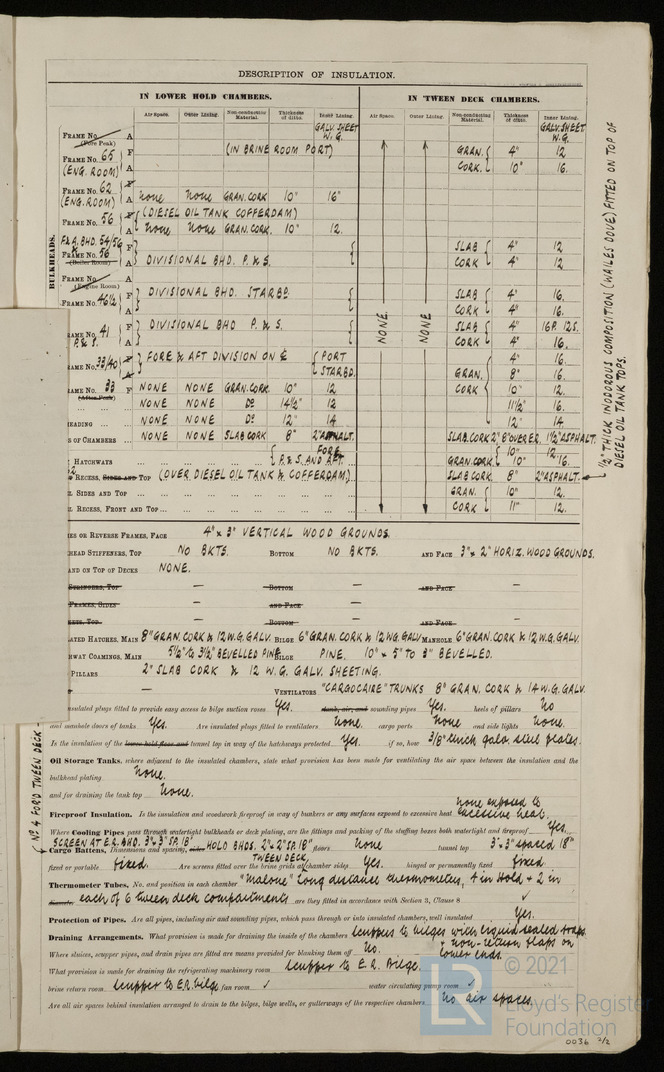 DESCRIPTION OF INSULATION.
IN LOWER HOLD CHAMBERS. IN 'TWEEN DECK CHAMBERS.
Air Space. Outer Lining. Non-conducting Material. Thickness of ditto. Inner Lining. Air Space. Outer Lining. Non-conducting Material. Thickness of ditto. Inner Lining.
GALV. SHEET W.G. GALV. SHEET W.G.
BULKHEADS.
FRAME No. A
(Fore Peak)
FRAME No. 65 F (IN BRINE ROOM PORT) GRAN. 4" 12
(ENG. ROOM) A CORK. 10" 16.
FRAME No. 62 F
(ENG. ROOM) A none None GRAN. CORK 10" 16"
FRAME No. 56 F (DIESEL OIL TANK COFFERDAM)
A None None GRAN. CORK. 10" 12.
F & A. BHD. 54/56
FRAME No. 56 F SLAB 4" 12
(Boiler Room) A DIVISIONAL BHD. P. & S. CORK 4" 12
FRAME No. A
(Engine Room)
FRAME No. 46½ F DIVISIONAL BHD. STARBD. SLAB 4" 16.
A CORK 4" 16.
RAME No. 41 F DIVISIONAL BHD P. & S. SLAB 4" 16P. 12S.
P. & S. A CORK 4" 16.
RAME No. 33/40 F FORE & AFT DIVISION ON ℄ PORT 4" 16.
A STARBD. GRAN. 8" 16.
AME No. 33 F NONE NONE GRAN. CORK. 10" 12 CORK 10" 12.
(After Peak)
NONE NONE Do 14½" 12 11½" 16.
EADING NONE NONE Do 12" 14 12" 14
S OF CHAMBERS NONE NONE SLAB CORK 8" 2" ASPHALT. SLAB CORK 2" 8" OVER E.R. 1½" ASPHALT.
HATCHWAYS FORE P. & S. AND AFT. GRAN. CORK 10" 10" 12. 16.
RECESS, SIDES AND TOP (OVER DIESEL OIL TANK & COFFERDAM.) SLAB CORK. 8" 2" ASPHALT.
L SIDES AND TOP GRAN. 10" 12.
L RECESS, FRONT AND TOP CORK 11" 12.
NONE. NONE
½" THICK INODOROUS COMPOSITION (WAILES DOVE) FITTED ON TOP OF
DIESEL OIL TANK TOPS.
ES OR REVERSE FRAMES, FACE 4" x 3" VERTICAL WOOD GROUNDS.
HEAD STIFFENERS, TOP NO BKTS. BOTTOM NO BKTS. AND FACE 3" x 2" HORIZ. WOOD GROUNDS.
AND ON TOP OF DECKS NONE.
STRINGERS, TOP — BOTTOM — AND FACE —
FRAMES, SIDES — AND FACE —
TOP — BOTTOM — AND FACE —
ATED HATCHES, MAIN 8" GRAN. CORK & 12 W.G. GALV. BILGE 6" GRAN. CORK & 12 WG. GALV. MANHOLE 6" GRAN. CORK & 12 W.G. GALV.
HWAY COAMINGS, MAIN 5½" to 3½" BEVELLED PINE BILGE PINE. 10" x 5" TO 3" BEVELLED.
PILLARS 2" SLAB CORK & 12 W. G. GALV. SHEETING.
— VENTILATORS "CARGOCAIRE" TRUNKS 8" GRAN. CORK & 14 W.G. GALV.
insulated plugs fitted to provide easy access to bilge suction roses Yes. tank, air, and sounding pipes Yes. heels of pillars No
and manhole doors of tanks Yes. Are insulated plugs fitted to ventilators None. cargo ports None and side lights None.
Is the insulation of the lower hold floor and tunnel top in way of the hatchways protected Yes. if so, how 3/8" thick galv. steel plates.
Nº 4 FOR'D TWEEN DECK
Oil Storage Tanks, where adjacent to the insulated chambers, state what provision has been made for ventilating the air space between the insulation and the
bulkhead plating None.
and for draining the tank top None.
Fireproof Insulation. Is the insulation and woodwork fireproof in way of bunkers or any surfaces exposed to excessive heat none exposed to excessive heat.
Where Cooling Pipes pass through watertight bulkheads or deck plating, are the fittings and packing of the stuffing boxes both watertight and fireproof Yes.
SCREEN AT E.R. BHD. 3" x 3" SP. 18"
Cargo Battens, Dimensions and spacing, HOLD BHDS. 2" x 2" SP. 18" floors None tunnel top 3" x 3" spaced 18"
fixed or portable fixed. Are screens fitted over the brine grids at TWEEN DECK, chamber sides Yes. hinged or permanently fixed fixed
Thermometer Tubes, No. and position in each chamber "Malone" Long distance thermometers, 4 in Hold & 2 in
each of 6 tween deck compartments are they fitted in accordance with Section 3, Clause 8 ✓
Protection of Pipes. Are all pipes, including air and sounding pipes, which pass through or into insulated chambers, well insulated Yes.
Draining Arrangements. What provision is made for draining the inside of the chambers Scuppers to bilges with liquid sealed traps & non-return flaps on lower ends.
Where sluices, scupper pipes, and drain pipes are fitted are means provided for blanking them off No.
What provision is made for draining the refrigerating machinery room Scupper to E.R. Bilge.
brine return room Scupper to E.R. bilge fan room ✓ water circulating pump room ✓
Are all air spaces behind insulation arranged to drain to the bilges, bilge wells, or gutterways of the respective chambers No air spaces.
© 2021
LR Lloyd's Register
Foundation
0036 2/2